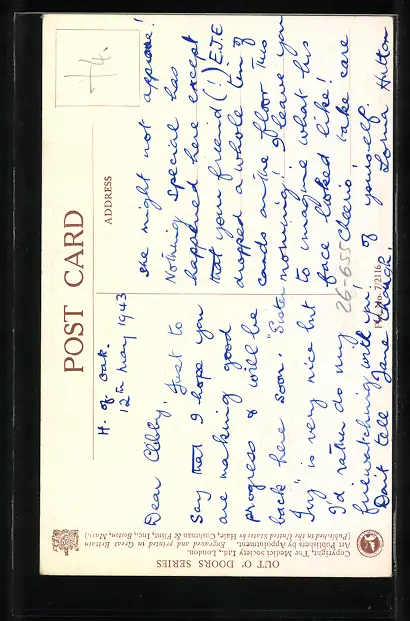 H4.
POST CARD
ADDRESS
H. of Oak.
12th May 1943
Dear Clibby, Just to
say that I hope you
are making good
progress & will be
back here soon. "Sister
Ivy" is very nice but
I'd rather do my
firewatching with you!
Don't tell Jane
she might not approve!
Nothing special has
happened here except
that your friend (!) E.J.E
dropped a whole tin of
cards on the floor this
morning! I leave you
to imagine what his
face looked like!
Cheerio take care
of yourself.
Lorna Hutton
26-655
7/2116
OUT O' DOORS SERIES
Copyright, The Medici Society Ltd., London.
Art Publishers by Appointment. Engraved and printed in Great Britain
(Published in the United States by Hale, Cushman & Flint, Inc., Boston, Mass.)